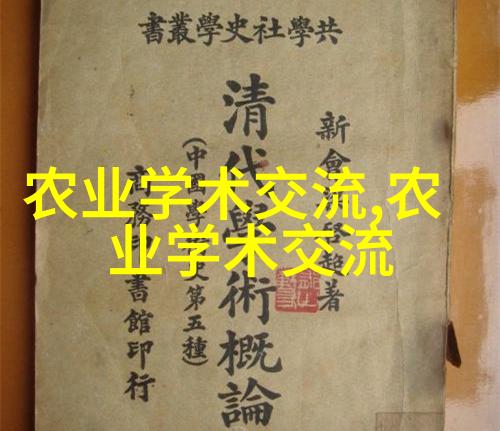 共學社史學叢書
新會梁啓超著
清代學術概論
(中國學術史第五種)
商務印書館印行
农业学术交流,农
业学术交流